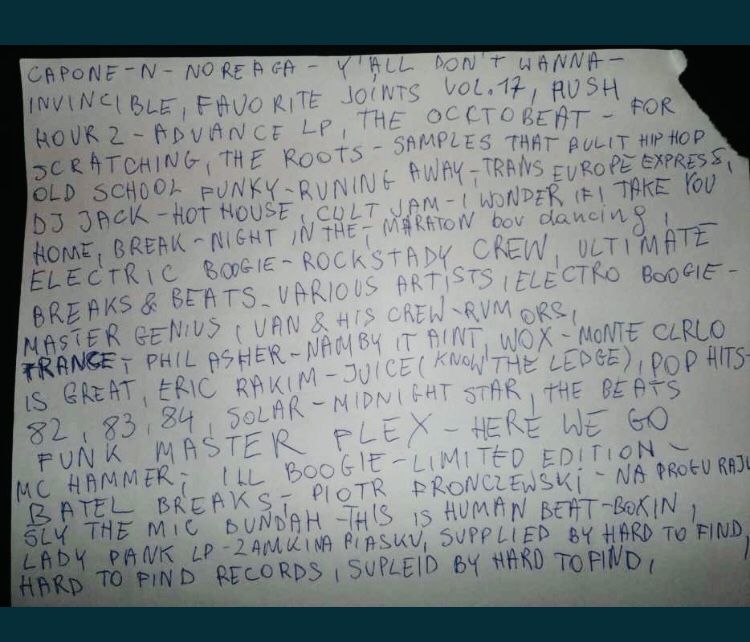 CAPONE-N-NOREAGA - Y'ALL DON'T WANNA -
INVINCIBLE, FAVORITE JOINTS VOL.17, RUSH
HOUR 2 - ADVANCE LP, THE OCKTOBEAT - FOR
SCRATCHING, THE ROOTS - SAMPLES THAT BULIT HIP HOP
OLD SCHOOL FUNKY - RUNING AWAY - TRANS EUROPE EXPRESS,
DJ JACK - HOT HOUSE, CULT JAM - I WONDER IF I TAKE YOU
HOME, BREAK - NIGHT IN THE, MARATON boy dancing,
ELECTRIC BOOGIE - ROCKSTADY CREW, ULTIMATE
BREAKS & BEATS - VARIOUS ARTISTS, ELECTRO BOOGIE -
MASTER GENIUS, VAN & HIS CREW - RUMORS,
TRANCE - PHIL ASHER - NAMBY IT AINT, WOX - MONTE CLRLO
IS GREAT, ERIC RAKIM - JUICE (KNOW THE LEDGE), POP HITS -
82, 83, 84, SOLAR - MIDNIGHT STAR, THE BEATS
FUNK MASTER FLEX - HERE WE GO
MC HAMMER, ILL BOOGIE - LIMITED EDITION -
BATEL BREAKS - PIOTR FRONCZEWSKI - NA PROGU RAJU
SLY THE MIC BUNDAH - THIS IS HUMAN BEAT-BOKIN,
LADY PANK LP - ZAMKI NA PIASKU, SUPPLIED BY HARD TO FIND,
HARD TO FIND RECORDS, SUPLEID BY HARD TO FIND,